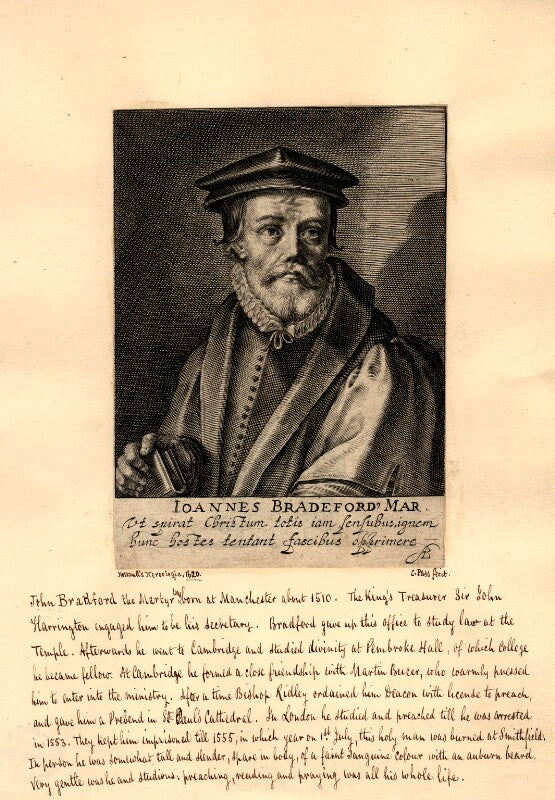 IOANNES BRADEFORDꝰ MAR.
Vt spirat Christum totis iam sensubus, ignem
hunc hostes tentant fascibus opprimere
AB
Holland's Herωologia, 1620.
C. Pass fecit.
John Bradford the Martyr was born at Manchester about 1510. The King's Treasurer Sir John
Harrington engaged him to be his secretary. Bradford gave up this office to study law at the
Temple. Afterwards he went to Cambridge and studied divinity at Pembroke Hall, of which College
he became fellow. At Cambridge he formed a close friendship with Martin Bucer, who warmly pressed
him to enter into the ministry. After a time Bishop Ridley ordained him Deacon with license to preach,
and gave him a Prebend in St. Paul's Cathedral. In London he studied and preached till he was arrested
in 1553. They kept him imprisoned till 1555, in which year on 1st July, this holy man was burned at Smithfield.
In person he was somewhat tall and slender, spare in body, of a faint sanguine colour with an auburn beard.
Very gentle was he and studious: preaching, reading and praying was all his whole life.